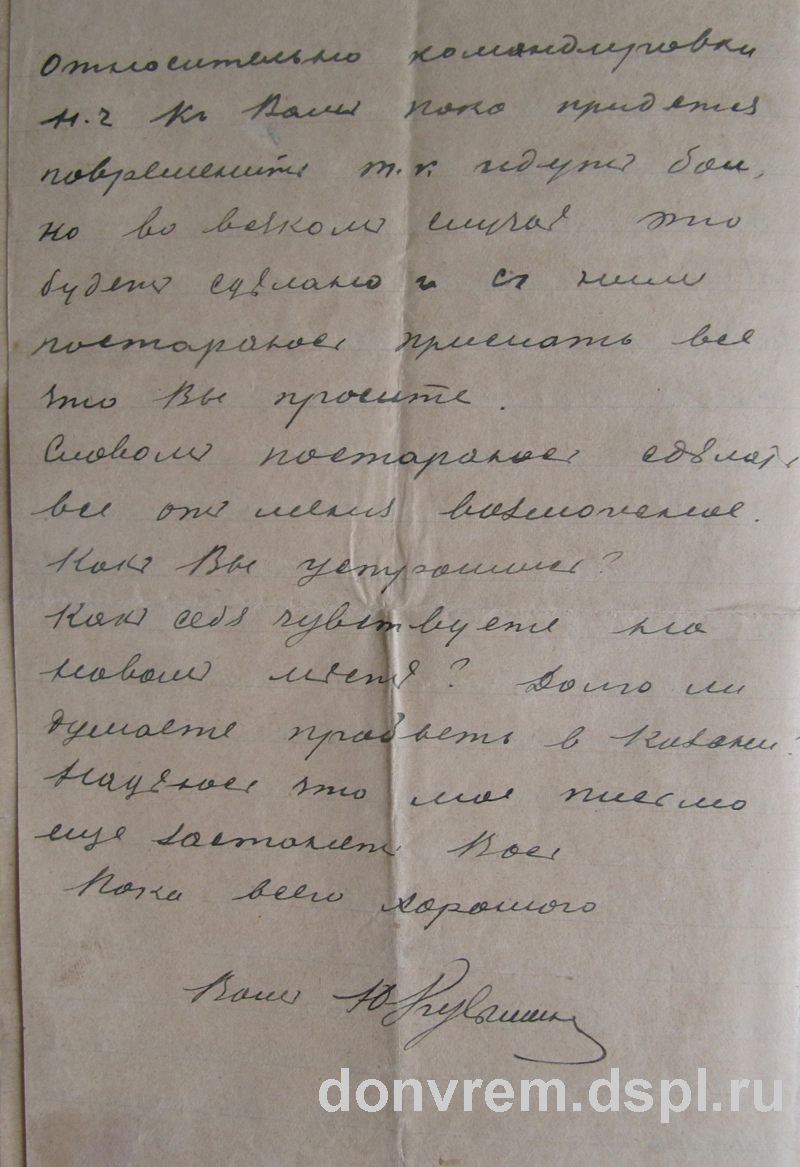 Относительно командировки
н.ч къ Вамъ пока придется
повременить т.к идутъ бои,
но во всякомъ случаѣ это
будетъ сдѣлано и съ ними
постараюсь прислать все
что Вы просите.
Словомъ постараюсь сдѣлать
все отъ меня возможное.
Какъ Вы устроились?
Какъ себя чувствуете на
новомъ мѣстѣ? Долго ли
думаете пробыть в Казани?
Надѣюсь что мое письмо
еще застанетъ Васъ
Пока всего хорошаго
Вашъ Ю
donvrem.dspl.ru